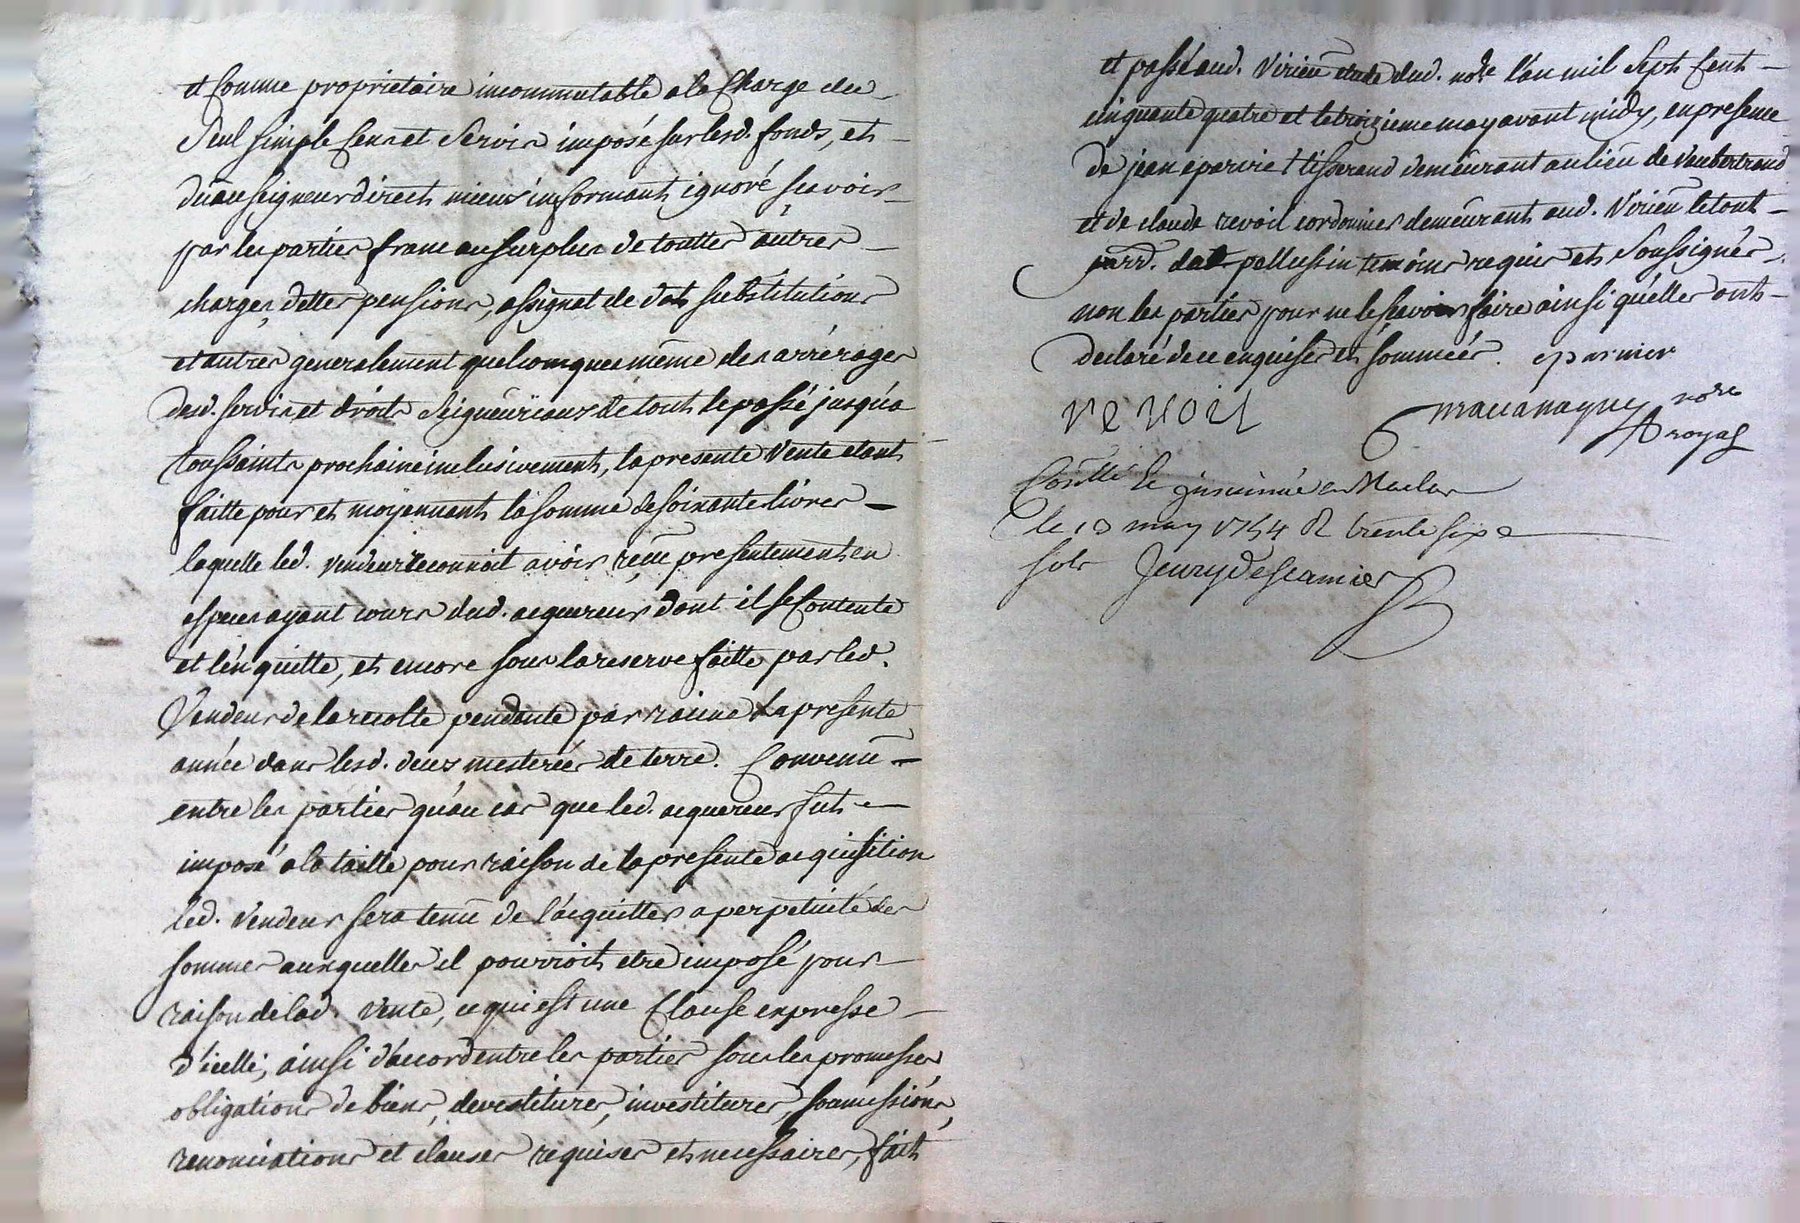 et Comme proprietaire incommutable a la Charge du
Seul simple Cens et Servis imposé sur lesd. fonds, et
du au seigneur direct mieux informant ignoré scavoir
par les parties franc au surplus de touttes autres
charges, dettes pensions, assignet de dot substitutions
et autres generalement quelconques même des arrérages
desd. servis et droits Seigneuriaux de tout le passé jusqu'a
toussaints prochaine inclusivement, la presente Vente etant
faitte pour et moyennent la somme de soixante livres
laquelle led. vendeur reconnoit avoir reçüe presentement en
especes ayant cours dud. acquereur dont il se Contente
et l'en quitte, et encore sous la reserve faitte par led.
Vendeur de la recolte pendante par racine la presente
année dans lesd. deux mesterées de terre. Convenu
entre les parties qu'au cas que led. acquereur fut
imposé a la taille pour raison de la presente acquisition
led. Vendeur sera tenu de l'acquitter a perpetuité des
sommes auxquelles il pourroit etre imposé pour
raison de lad. Vente, ce qui est une Clause expresse
d'icelle, ainsi d'accord entre les parties sous les promesses
obligations de biens, devestitures, investitures, soumissions,
renonciations et clauses requises et necessaires, fait
et passé aud. Virieu etude dud. nore l'an mil Sept Cent
cinquante quatre et le troizieme may avant midy, en presence
de jean eparvier tisserand demeurant au lieu de Vaubertrand
et de claude revoil cordonnier demeurant aud. Virieu le tout
parr. de pellussin temoins requis et Soussignés
non les parties pour ne le scavoir faire ainsi qu'elles ont
declaré de ce enquises et sommées. eparvier
revoil nore
royal
Con.llé le & insinué a Maclas
le 13 may 1754 R trente six
sols